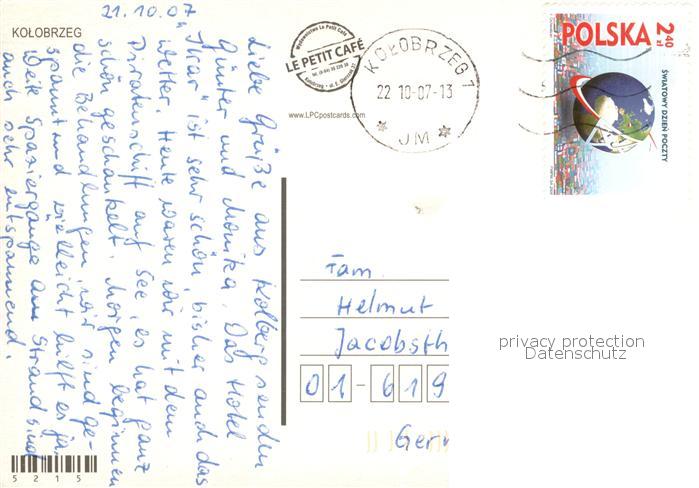 21.10.07
KOŁOBRZEG
Liebe Grüße aus Kolberg senden
Günter und Monika. Das Hotel
"Ikar" ist sehr schön, bisher auch das
Wetter. Heute waren wir mit dem
Piratenschiff auf See, es hat ganz
schön geschaukelt. Morgen beginnen
die Behandlungen, wir sind ge-
spannt und vielleicht hilft es ja.
Weite Spaziergänge am Strand sind
auch sehr entspannend.
Wydawnictwo Le Petit Café
LE PETIT CAFÉ
www.LPCpostcards.com
KOŁOBRZEG 1
22 10-07-13
JM
POLSKA 2,40 zł
ŚWIATOWY DZIEŃ POCZTY
Fam.
Helmut
Jacobsth
01-619
Gerr
privacy protection
Datenschutz
5215